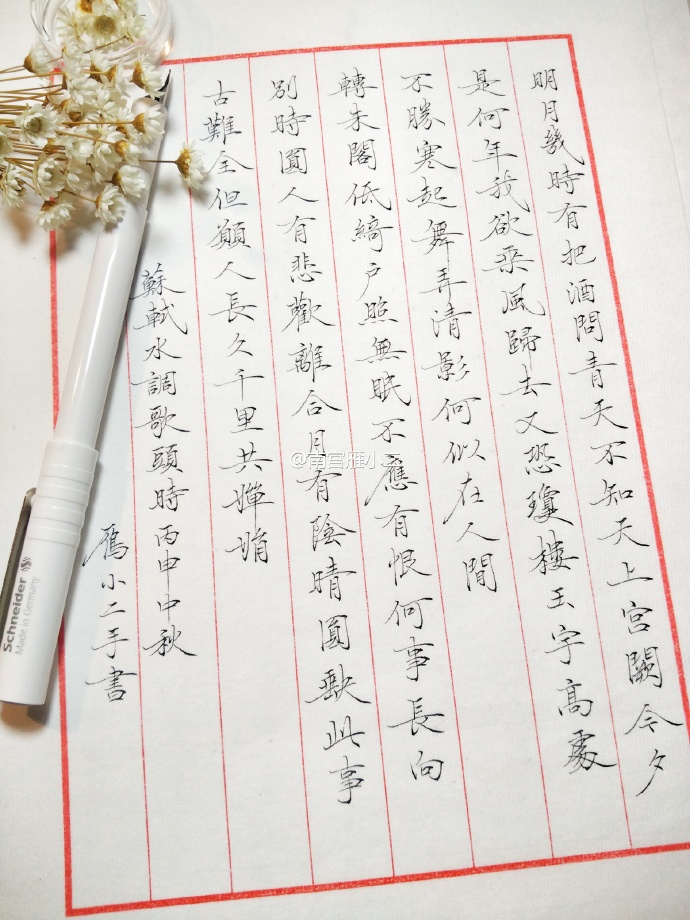 明月幾時有把酒問青天不知天上宮闕今夕
是何年我欲乘風歸去又恐瓊樓玉宇高處
不勝寒起舞弄清影何似在人間
轉朱閣低綺户照無眠不應有恨何事長向
別時圓人有悲歡離合月有陰晴圓缺此事
古難全但願人長久千里共嬋娟
蘇軾水調歌頭時丙申中秋
雁小二手書
@南宫雁小二
Schneider
Made in Germany